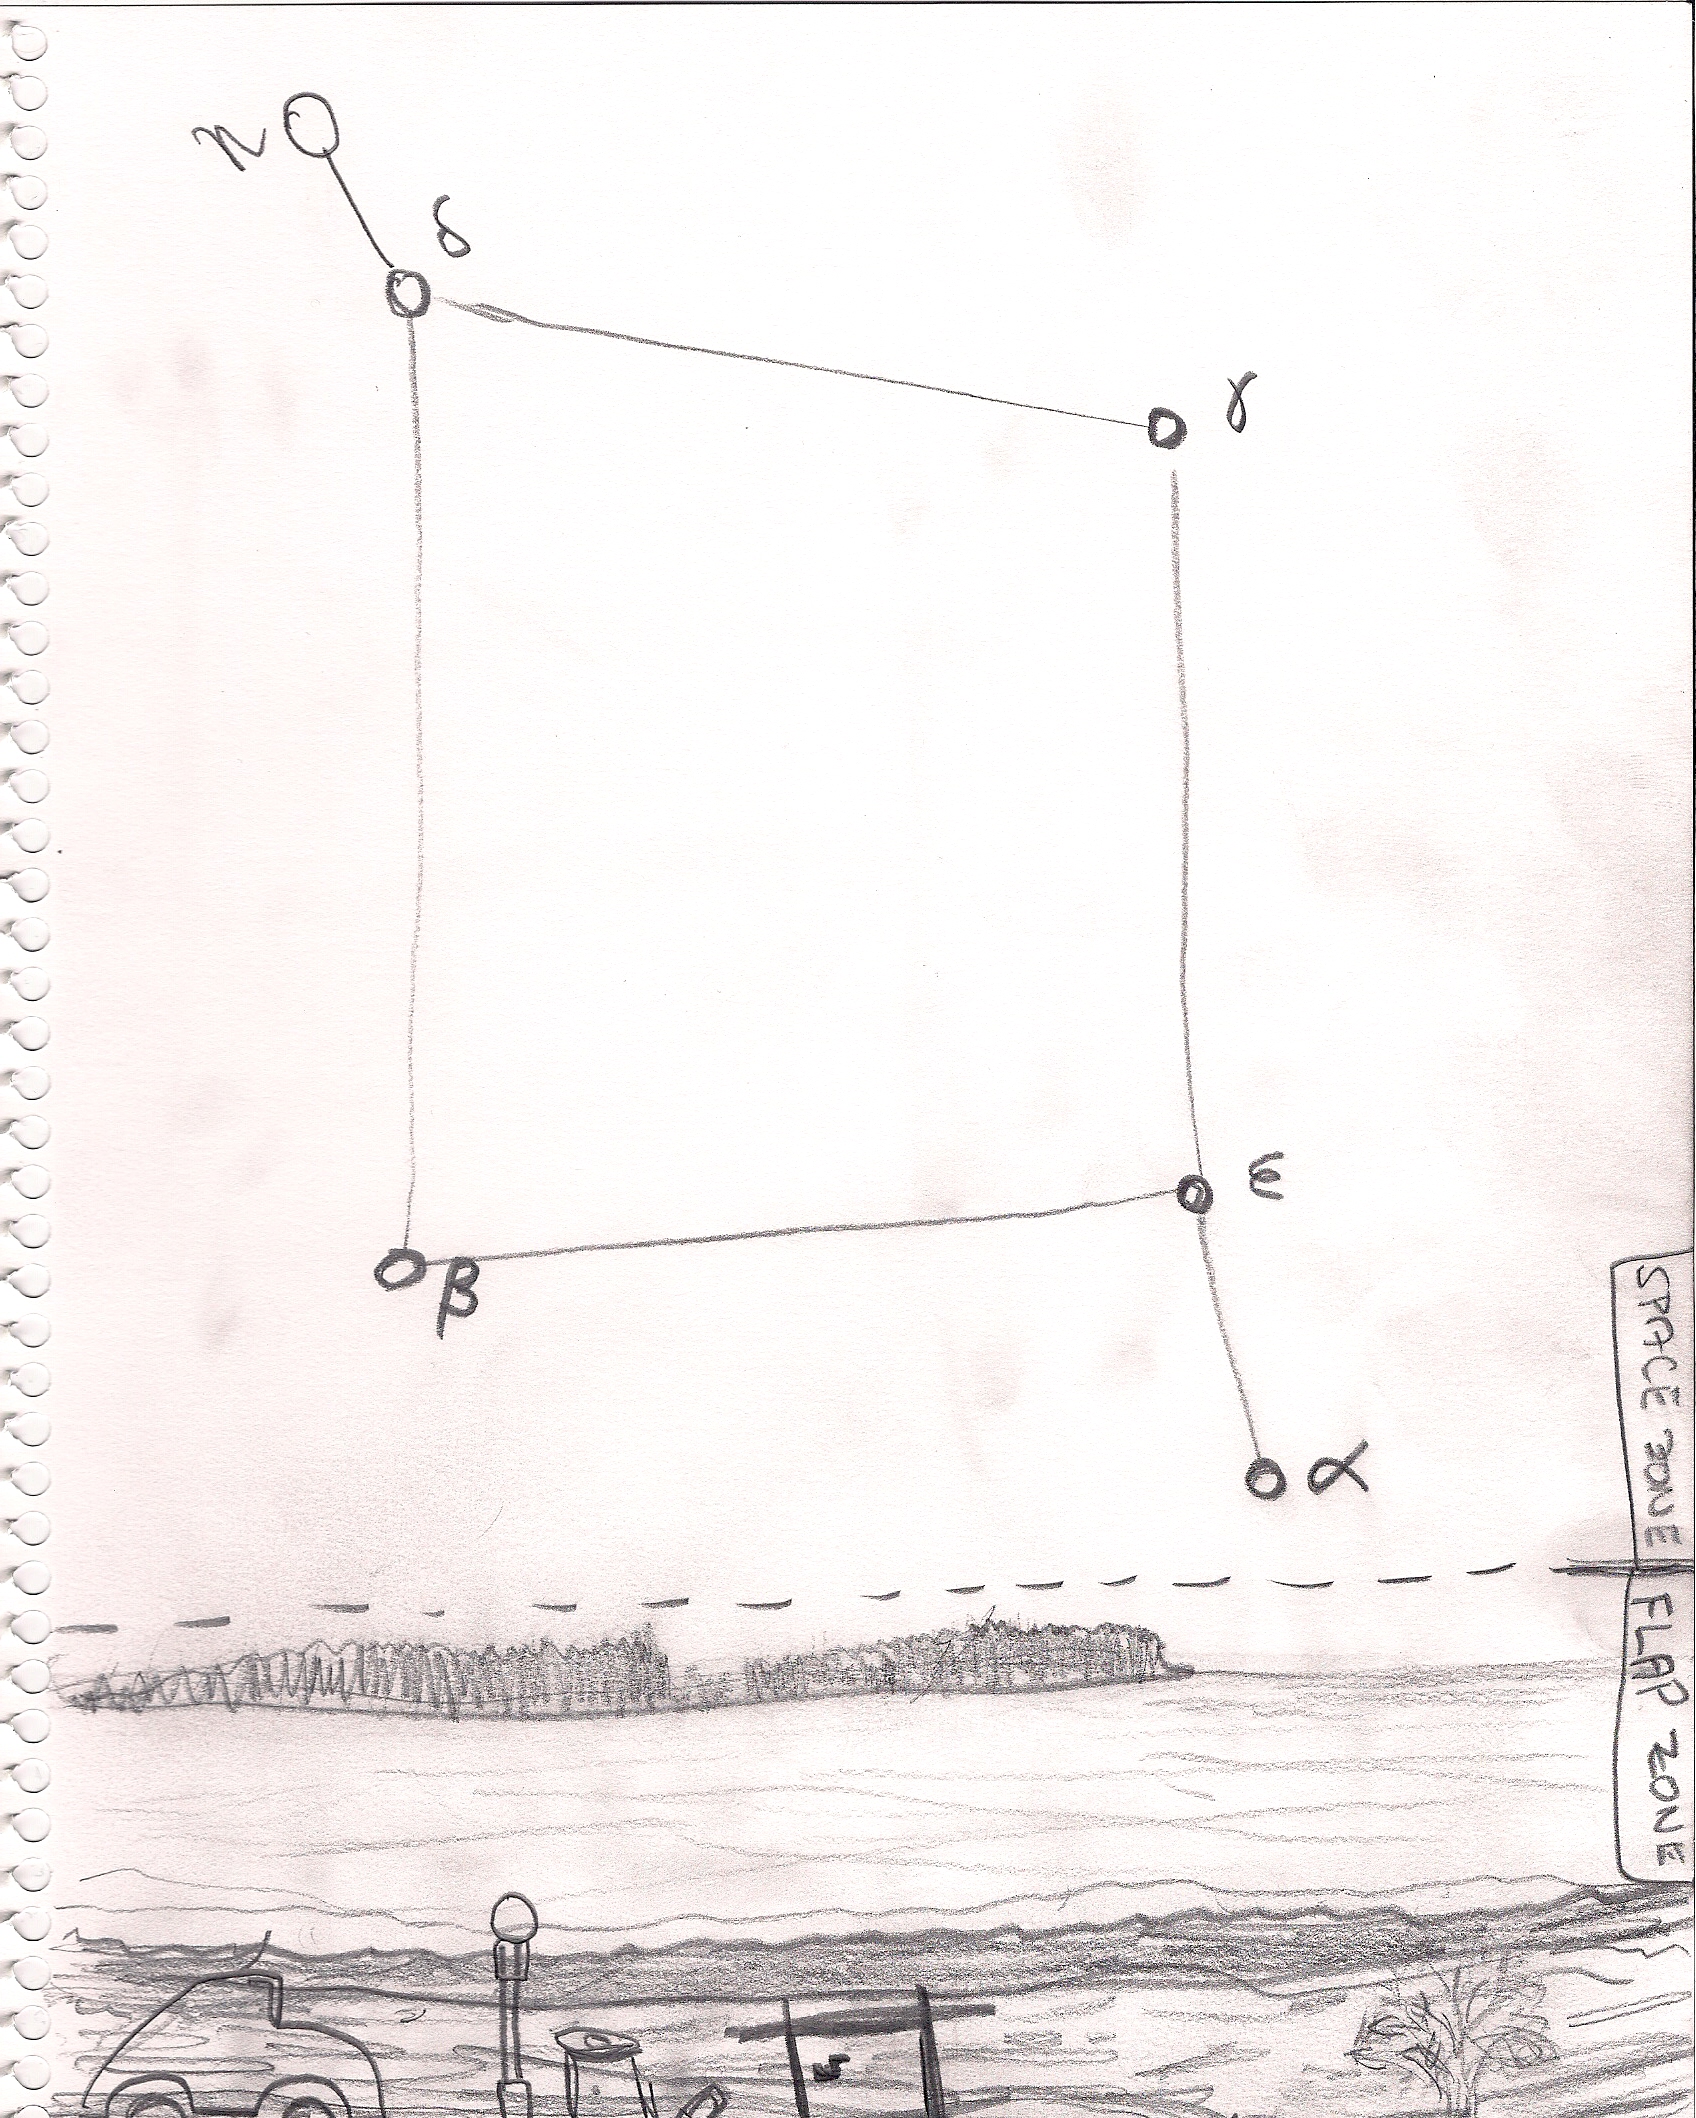 η
δ
γ
ε
β
α
SPACE ZONE
FLAP ZONE